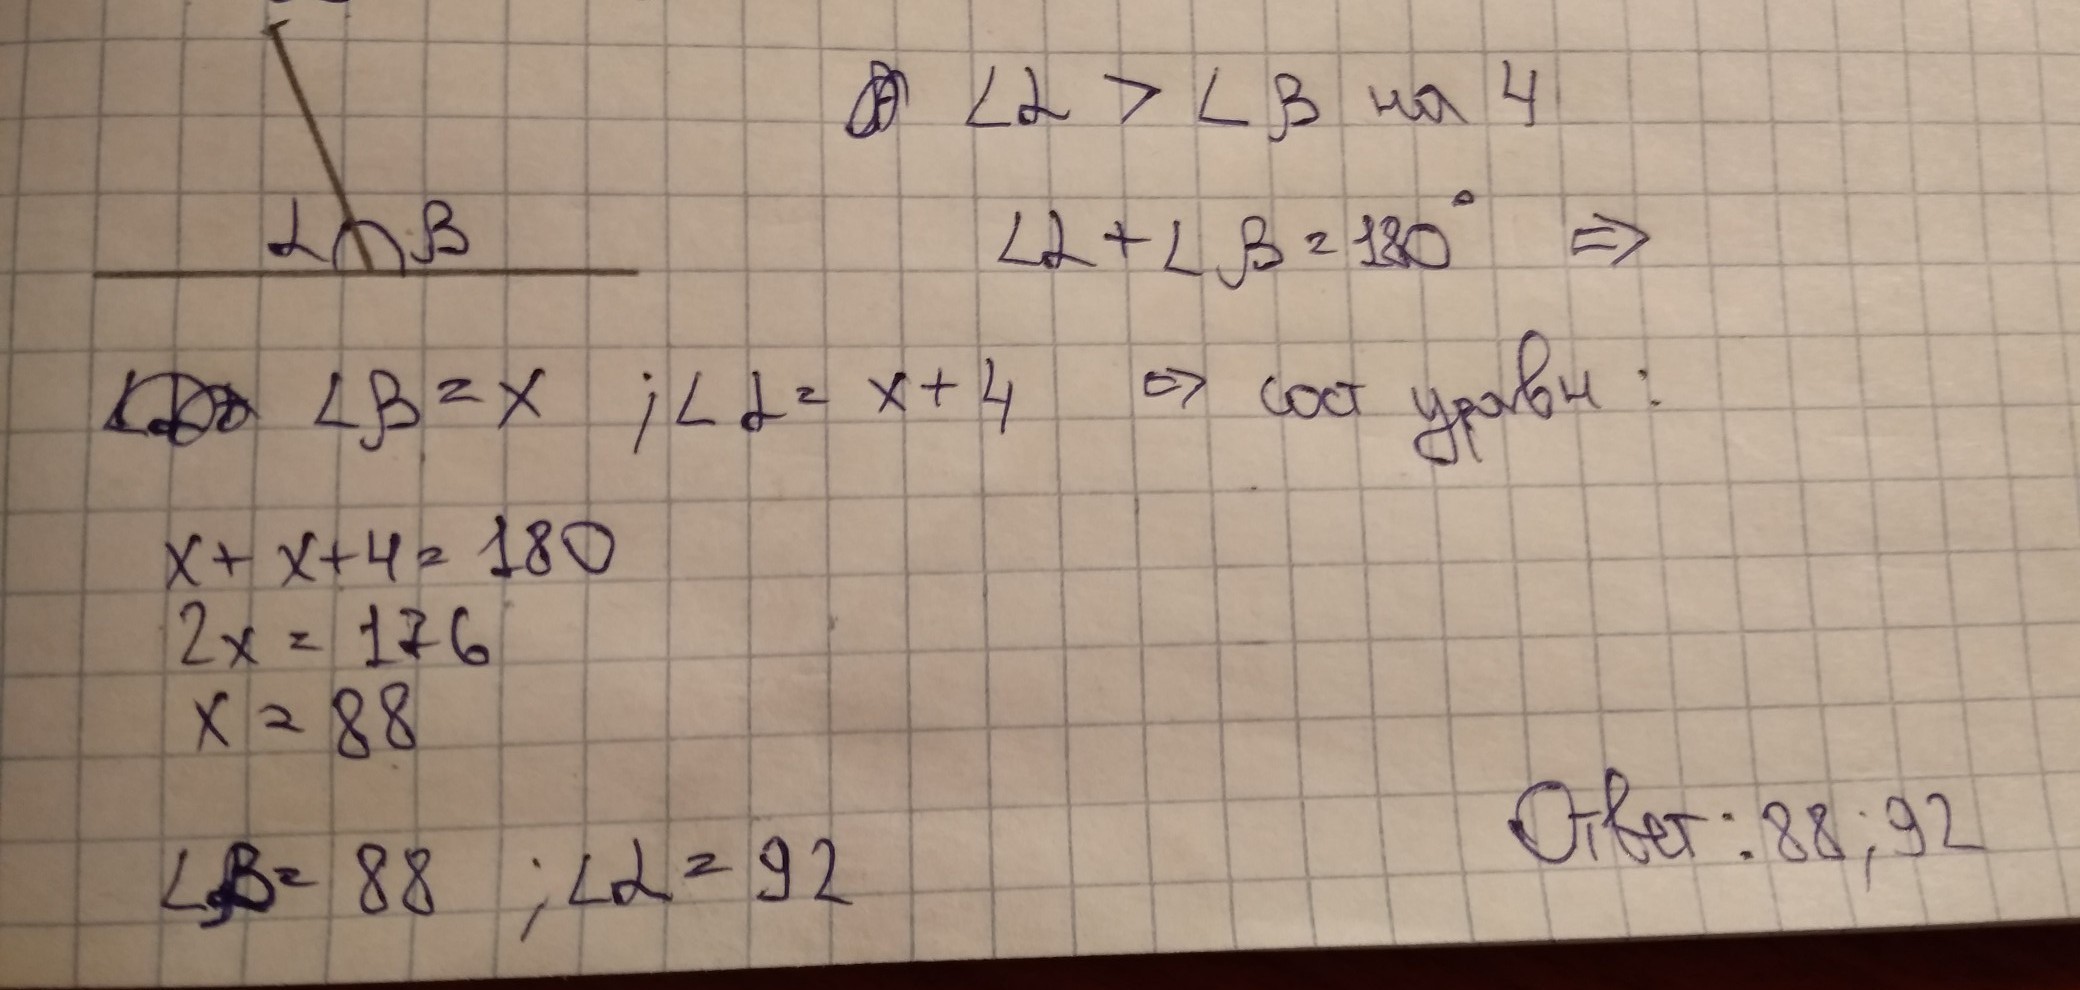 ∠α > ∠β на 4
∠α + ∠β = 180° ⇒
α β
∠β = x ; ∠α = x + 4 ⇒ сост уравн :
x + x + 4 = 180
2x = 176
x = 88
∠β = 88 ; ∠α = 92
Ответ : 88 ; 92